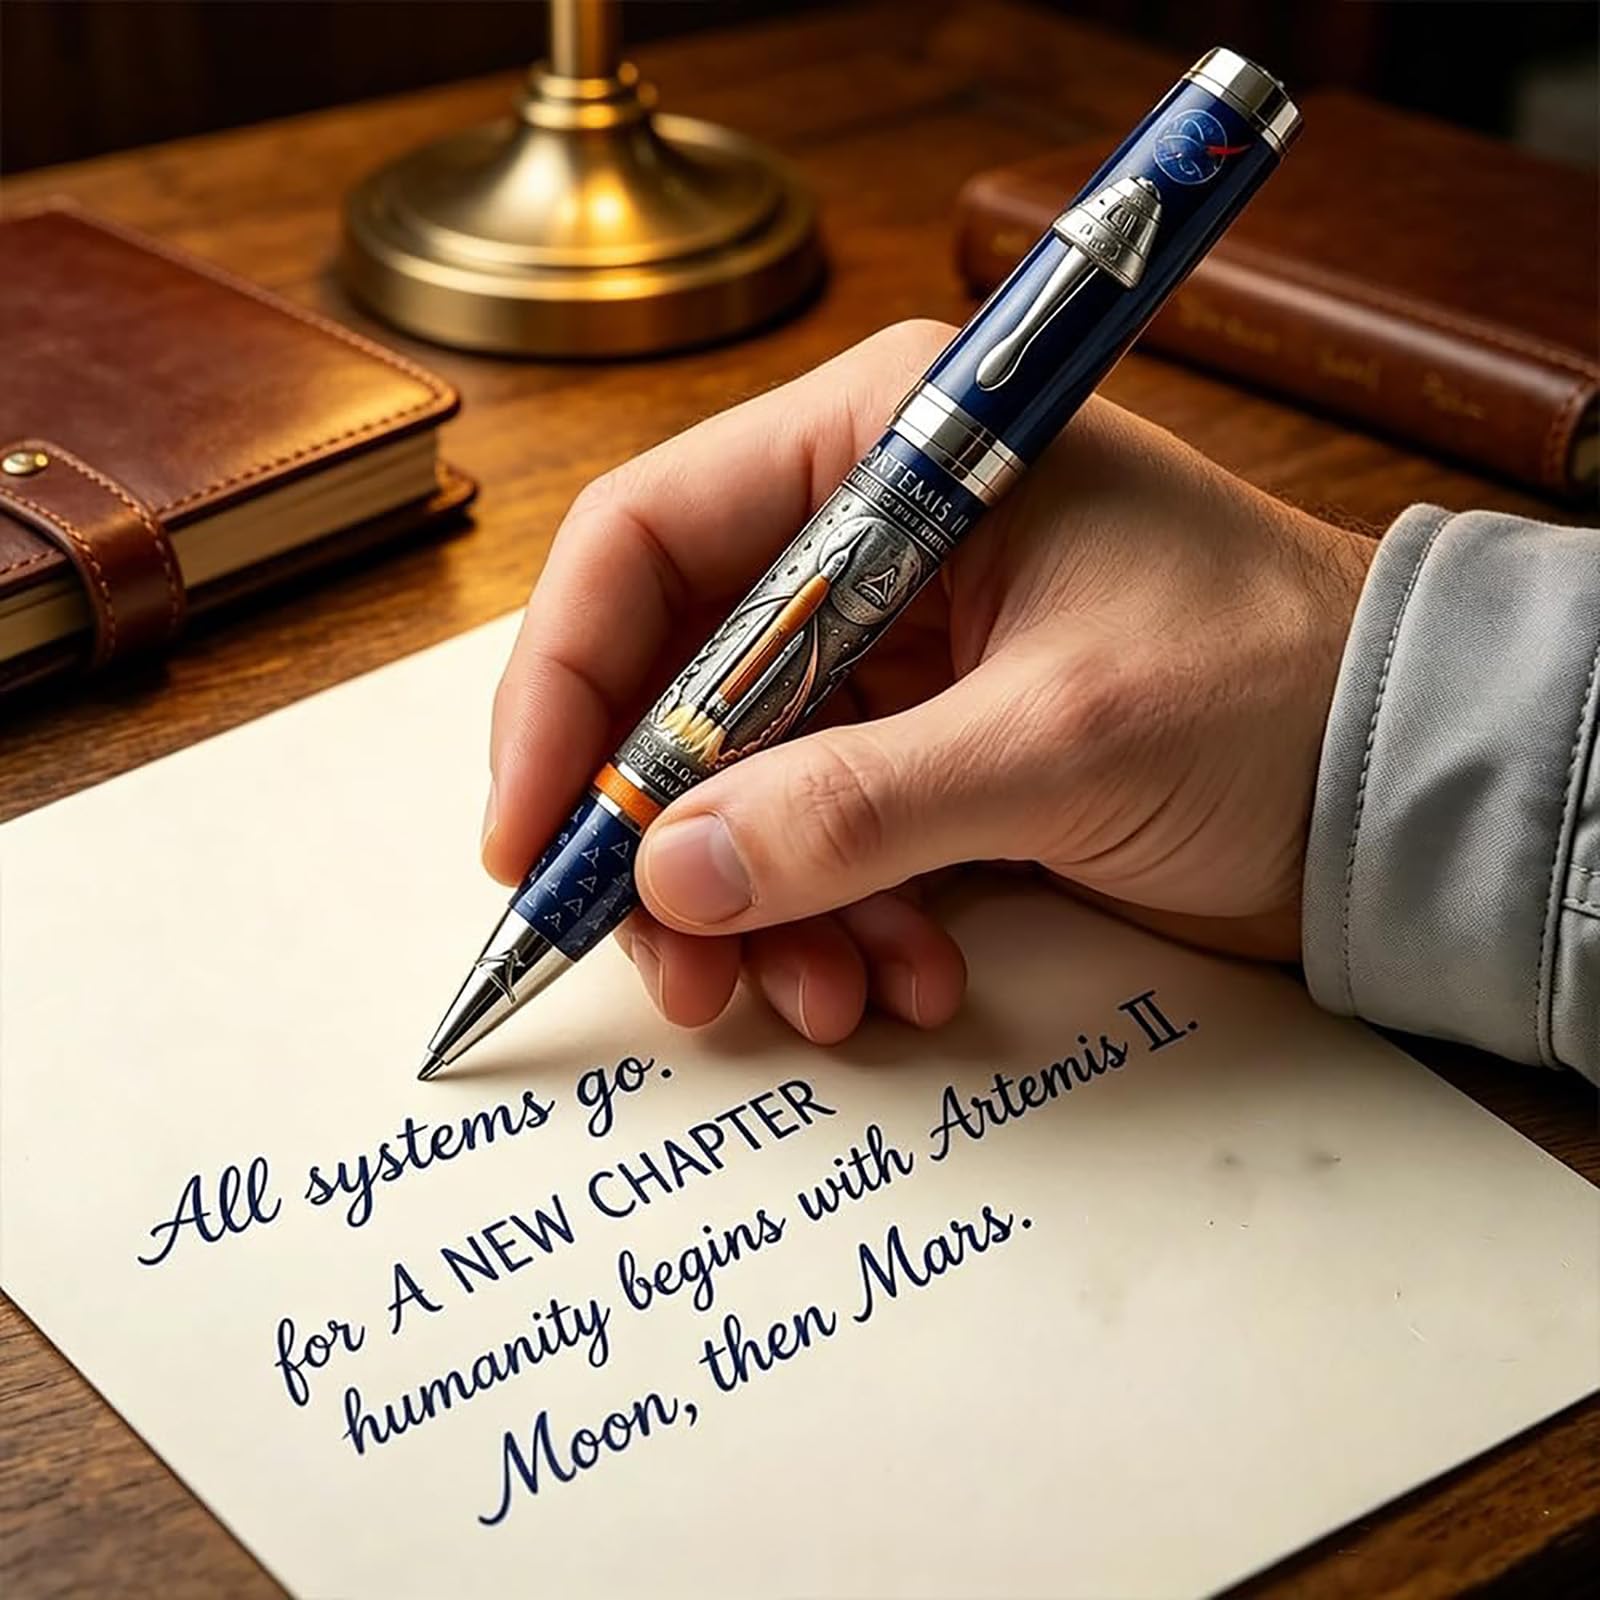 ARTEMIS II
All systems go.
for A NEW CHAPTER
humanity begins with Artemis II.
Moon, then Mars.